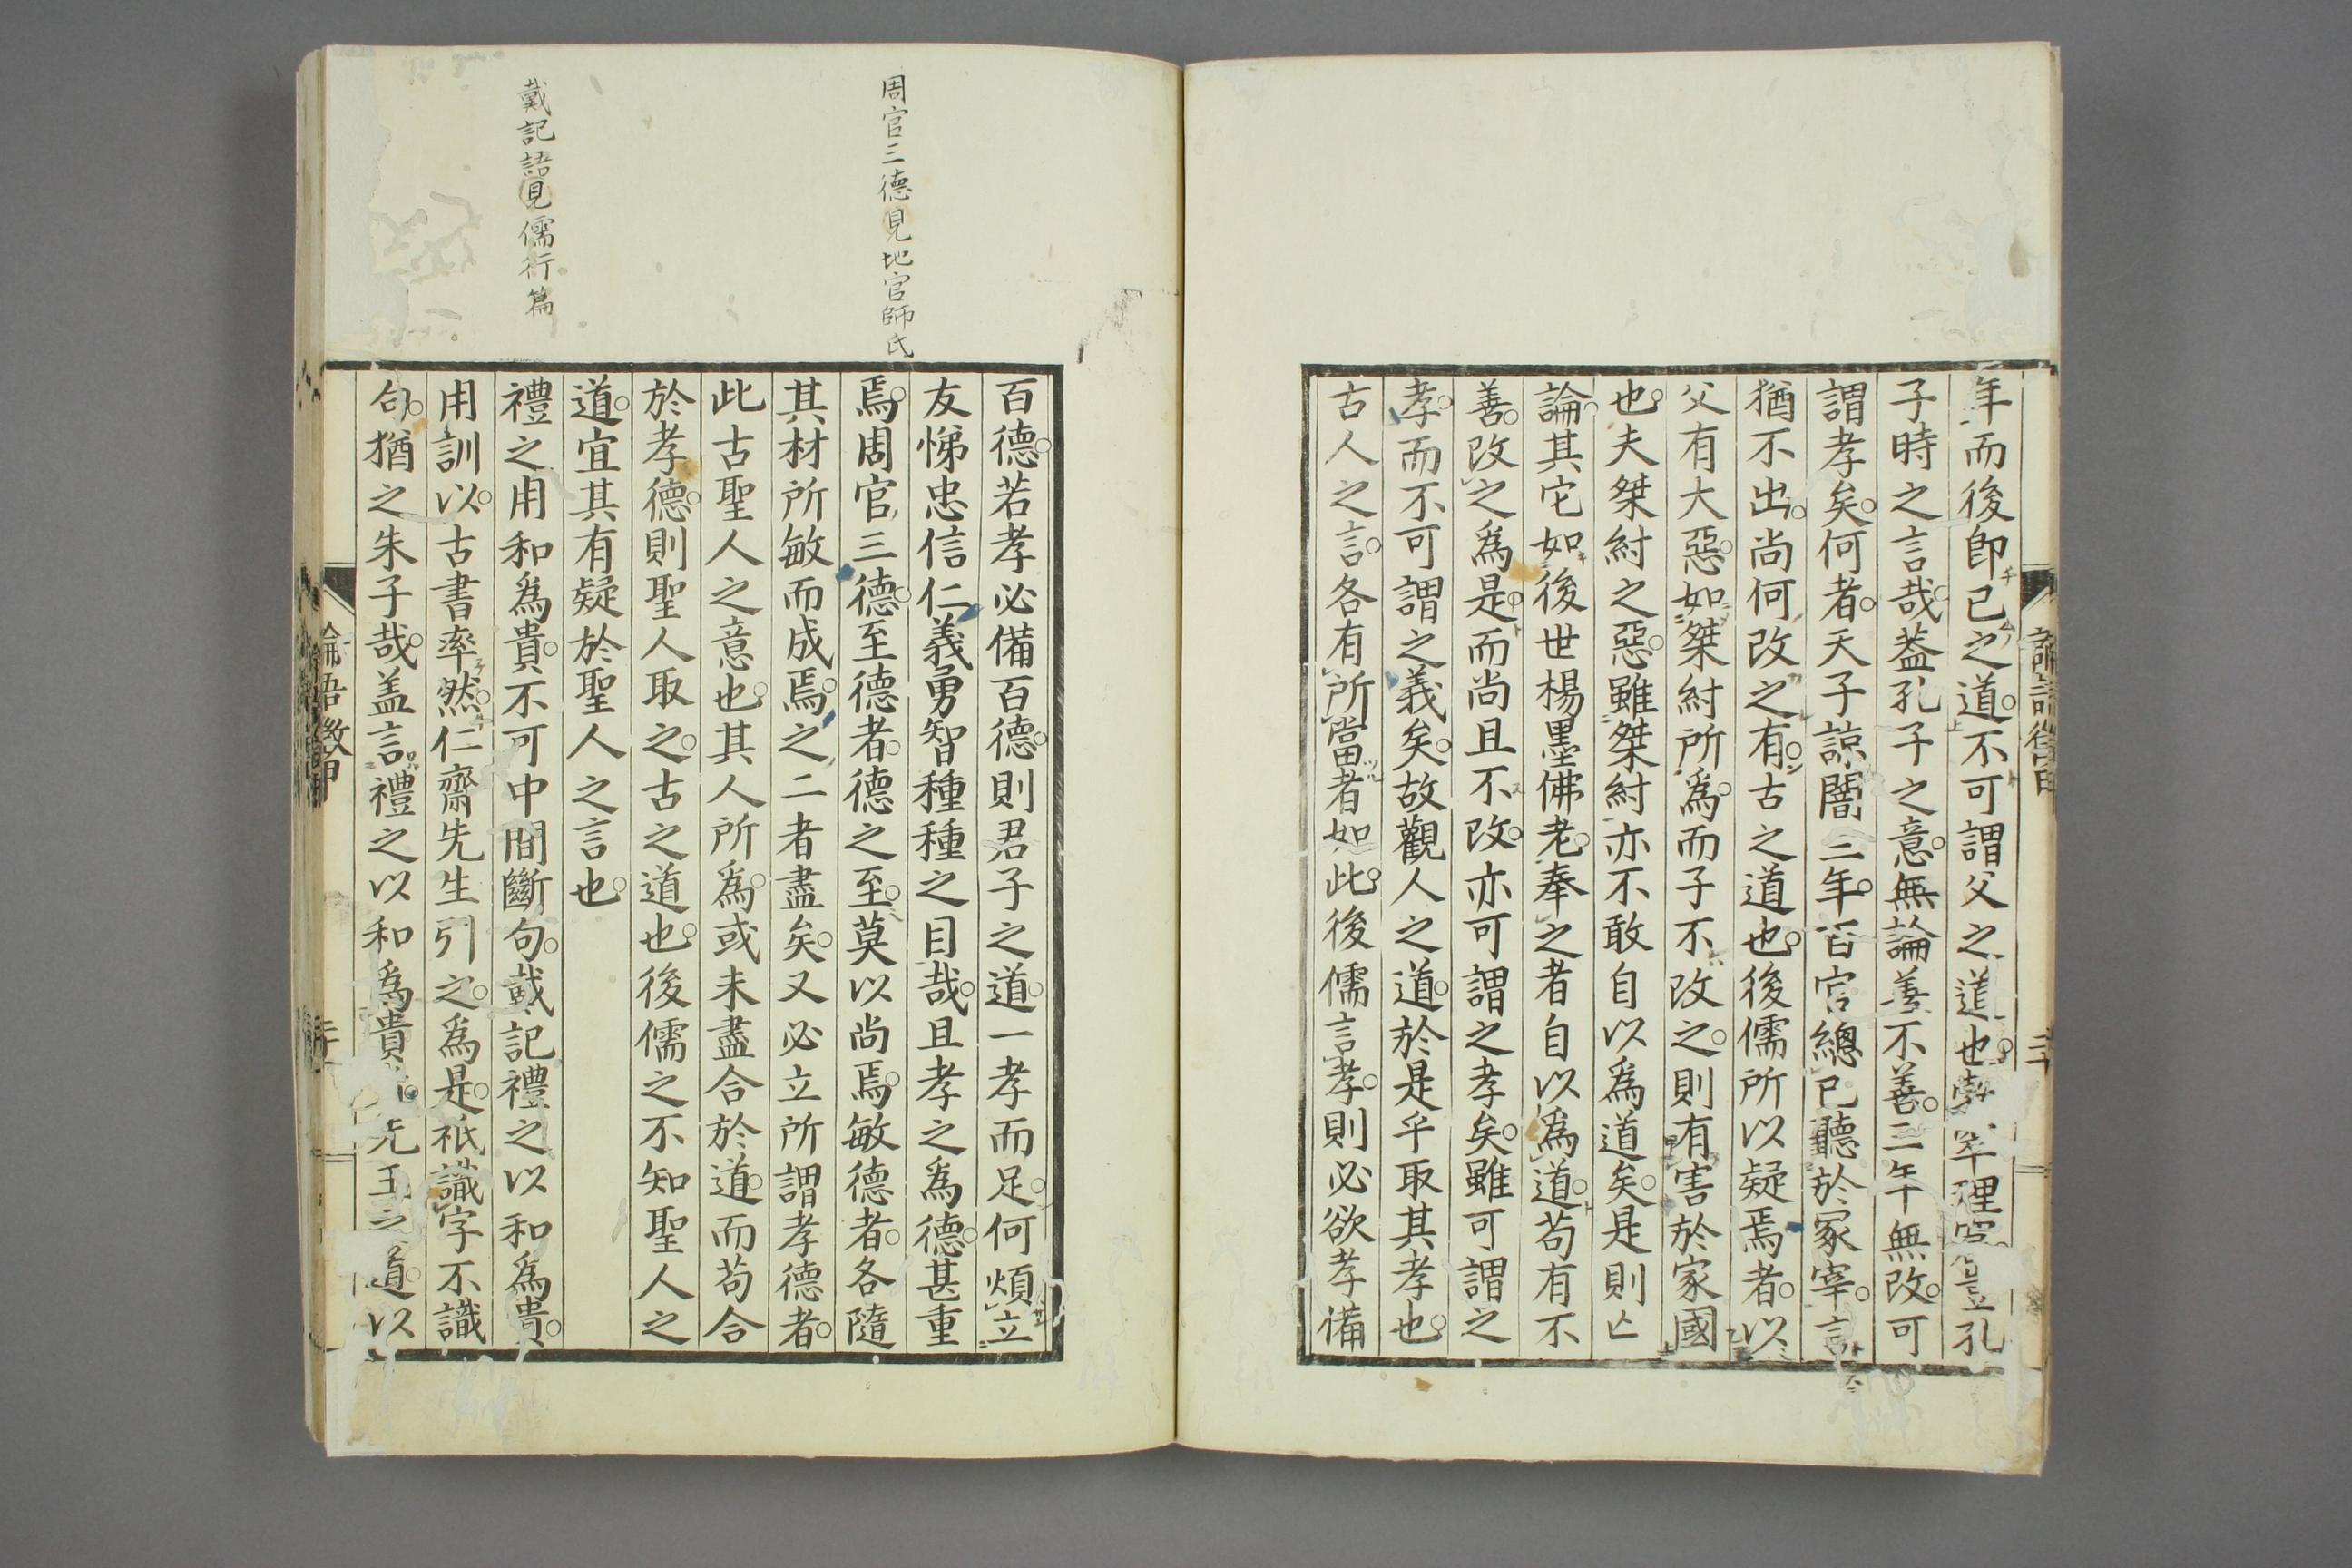 年而後即已之道不可謂父之道也學率理窟豈孔
子時之言哉。葢孔子之意。無論善不善。三年無改。可
謂孝矣。何者。天子諒闇三年。百官總已聽於冢宰。言
猶不出。尚何改之有。古之道也。後儒所以疑焉者。以
父有大惡。如桀紂所爲。而子不改之。則有害於家國
也。夫桀紂之惡。雖桀紂亦不敢自以爲道矣。是則亡
論。其它如後世楊墨佛老。奉之者自以爲道。苟有不
善。改之爲是。而尚且不改。亦可謂之孝矣。雖可謂之
孝。而不可謂之義矣。故觀人之道。於是乎取其孝也。
古人之言。各有所當者如此。後儒言孝。則必欲孝備
論語徵甲
周官三德見地官師氏
戴記語見儒行篇
百德。若孝必備百德。則君子之道。一孝而足。何煩立
友悌忠信仁義勇智種種之目哉。且孝之爲德。甚重
焉。周官三德。至德者。德之至。莫以尚焉。敏德者。各隨
其材所敏而成焉。之二者盡矣。又必立所謂孝德者。
此古聖人之意也。其人所爲。或未盡合於道。而苟合
於孝德。則聖人取之。古之道也。後儒之不知聖人之
道。宜其有疑於聖人之言也。
禮之用和爲貴。不可中間斷句。戴記禮之以和爲貴。
用訓以。古書率然。仁齋先生引之。爲是。祇識字不識
句。猶之朱子哉。盖言禮之以和爲貴先王之道以
論語徵甲